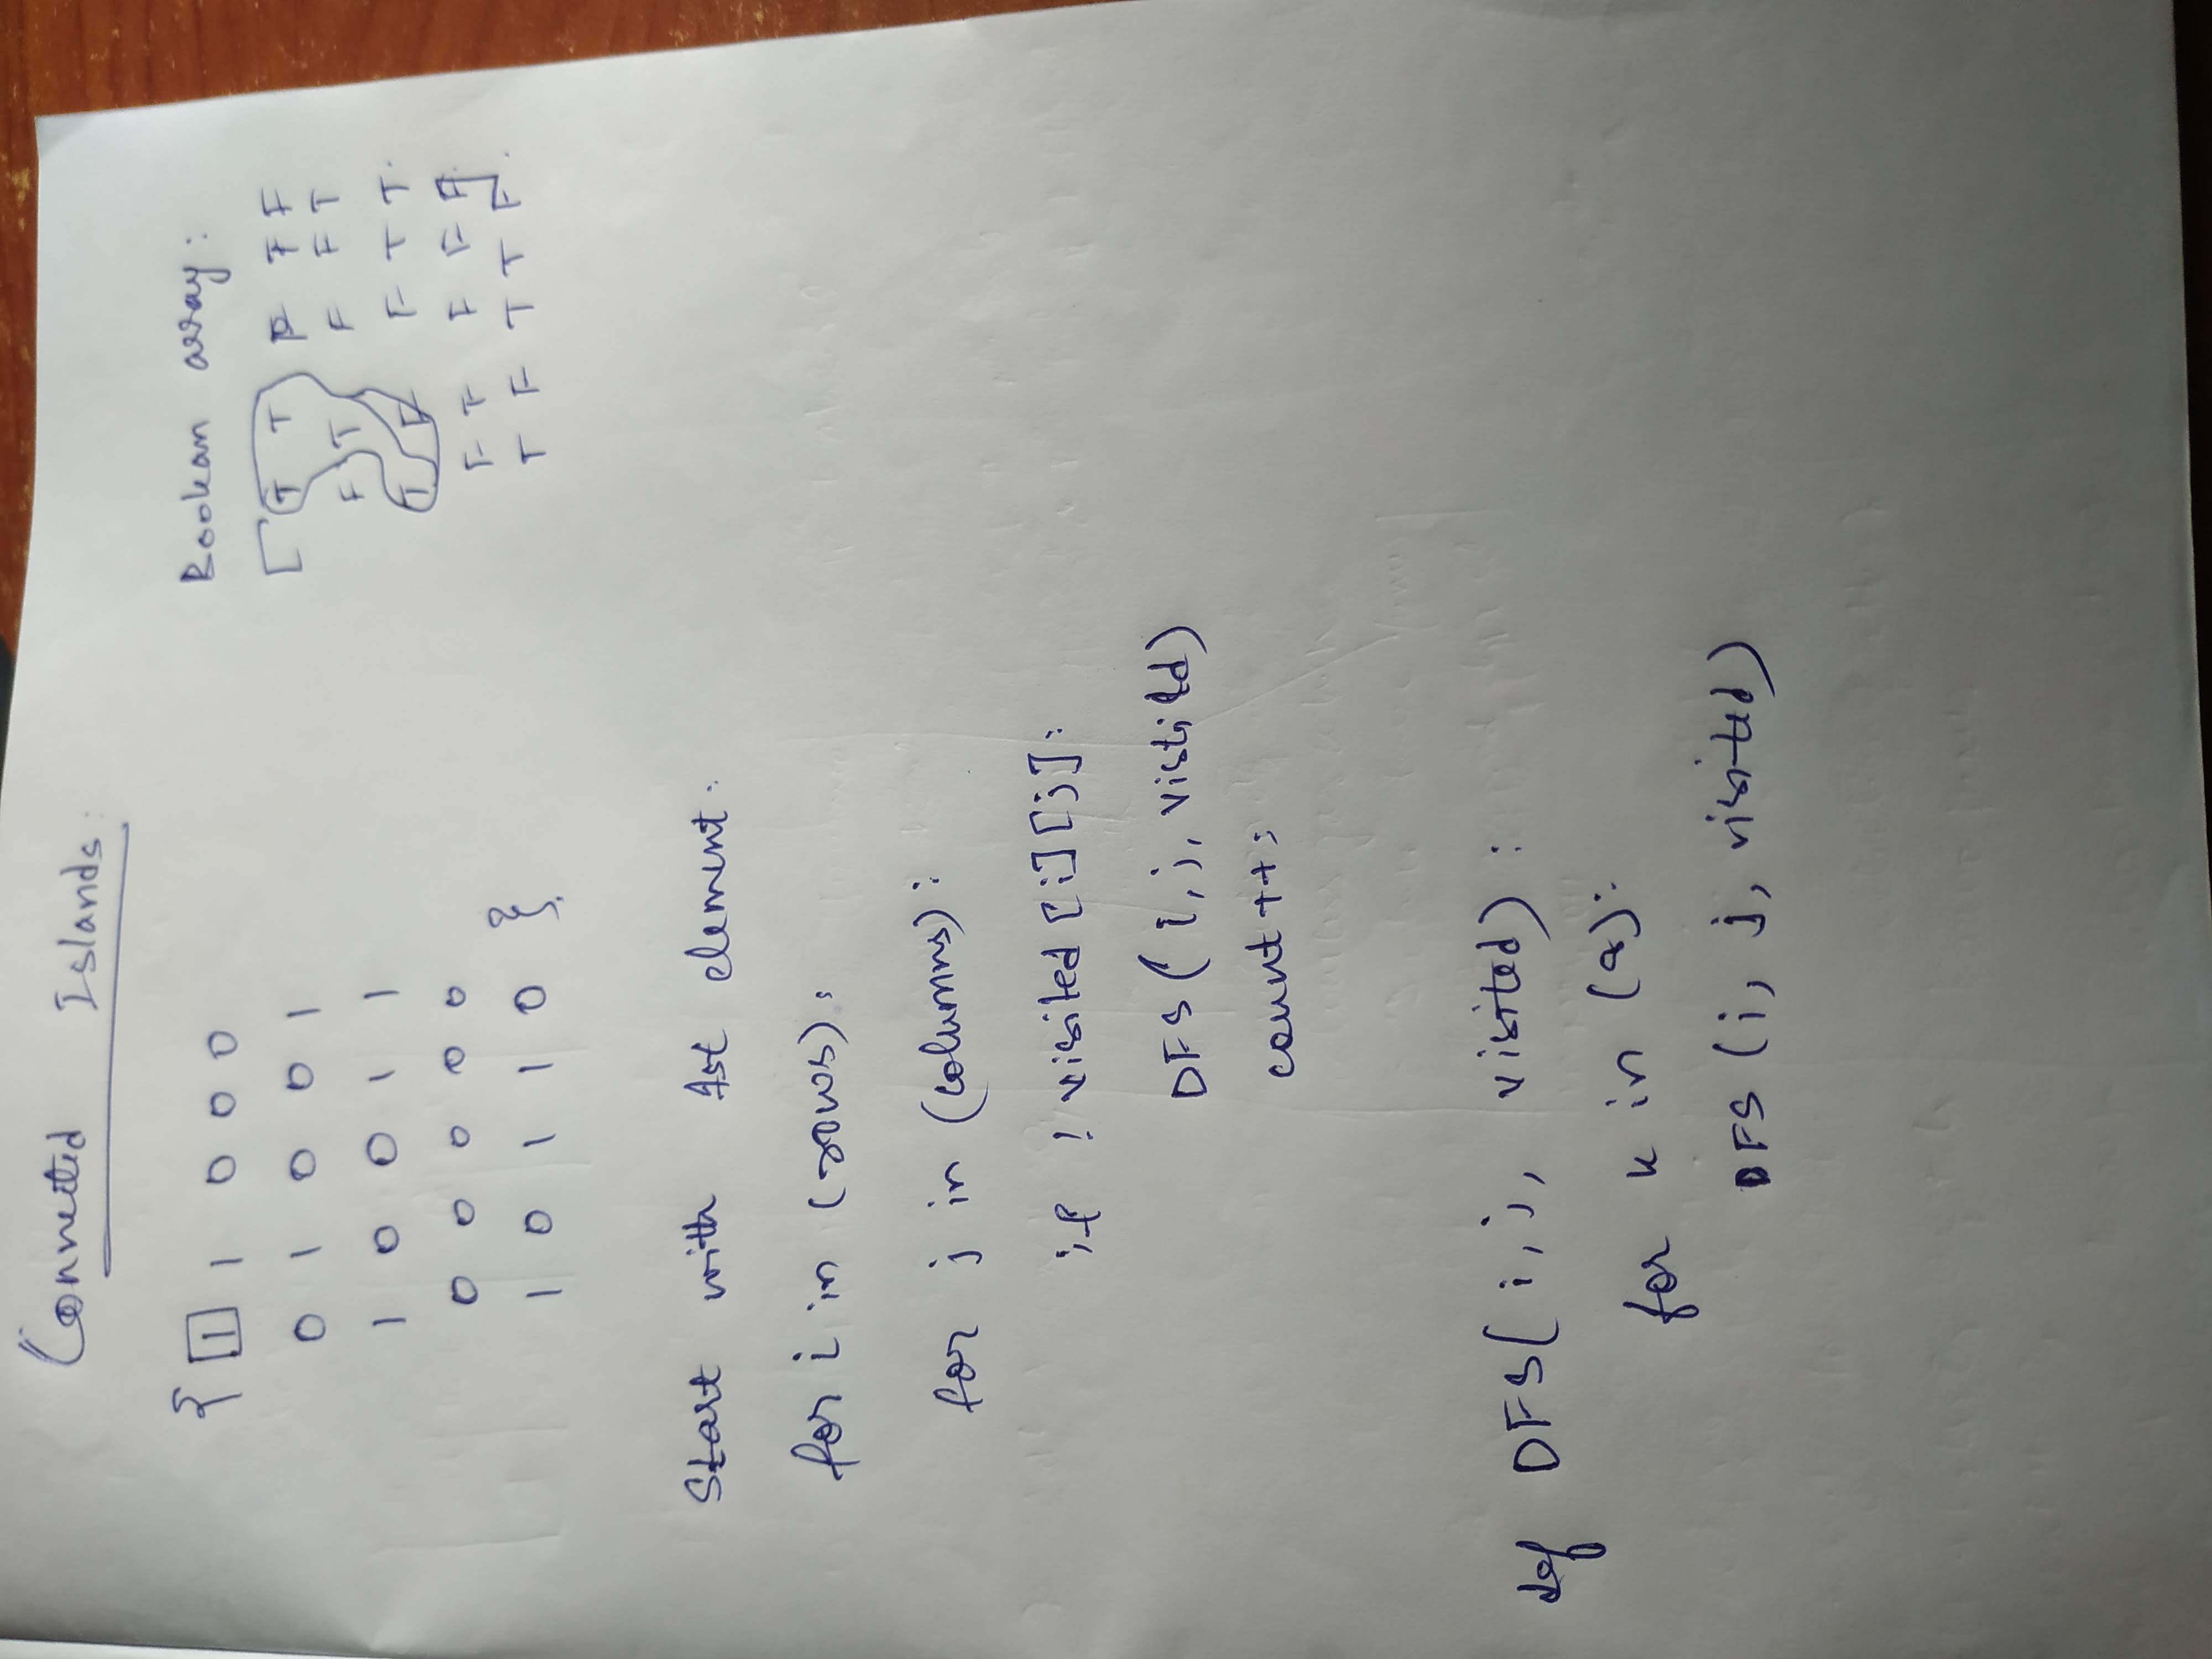 Connected Islands:
{ 1 1 0 0 0
0 1 0 0 1
1 0 0 1 1
0 0 0 0 0
1 0 1 1 0 }
Boolean array:
[ T T F F F
F T F F T
T F F T T
F F F F F ]
T F T T F
Start with 1st element.
for i in (rows):
for j in (columns):
if ! visited [i][j]:
DFS ( i, j, vistited)
count ++;
def DFS( i, j, visited) :
for k in (8):
DFS (i, j, visited)